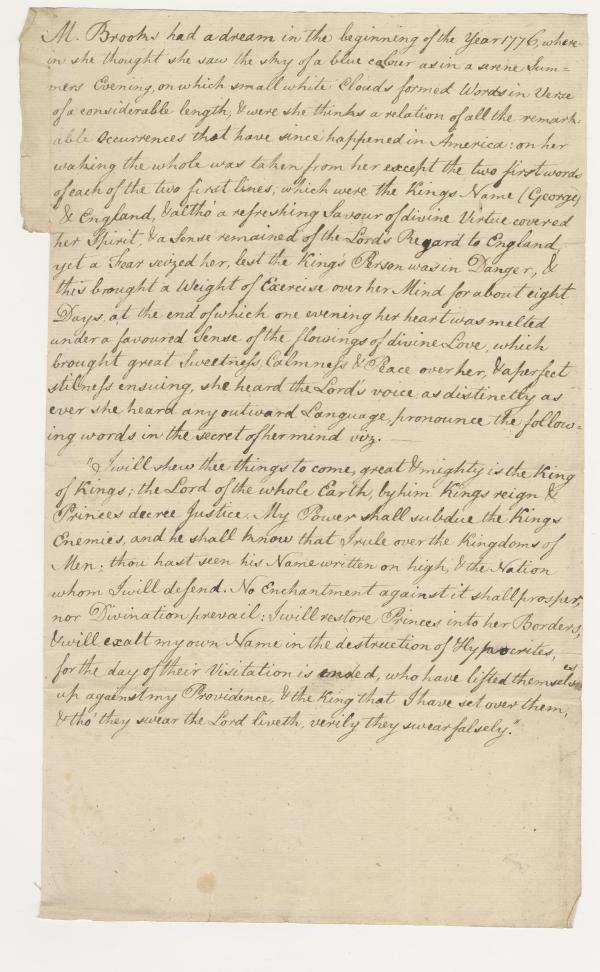 M. Brooks had a dream in the beginning of the Year 1776, where-
in she thought she saw the sky of a blue colour as in a serene Sum=
mers Evening, on which small white Clouds formed Words in Verse
of a considerable length, & were she thinks a relation of all the remark-
able Occurrences that have since happened in America: on her
waking the whole was taken from her except the two first words
of each of the two first lines, which were the Kings Name (George)
& England, & altho' a refreshing Savour of divine Virtue covered
her Spirit, & a Sense remained of the Lord's Regard to England,
yet a Fear seized her, lest the King's Person was in Danger, &
this brought a Weight of Exercise over her Mind for about eight
Days, at the end of which one evening her heart was melted
under a favoured Sense of the flowings of divine Love, which
brought great Sweetness, Calmness & Peace over her, & a perfect
stilness ensuing, she heard the Lord's voice, as distinctly as
ever she heard any outward Language, pronounce the follow=
ing words in the secret of her mind viz. —
"I will shew thee things to come, great & mighty is the King
of Kings; the Lord of the whole Earth, by him Kings reign &
Princes decree Justice. My Power shall subdue the Kings
Enemies, and he shall know that I rule over the Kingdoms of
Men; thou hast seen his Name written on high, & the Nation
whom I will defend. No Enchantment against it shall prosper,
nor Divination prevail: I will restore Princes into her Borders,
& will exalt my own Name in the destruction of Hypocrites,
for the day of their Visitation is ended, who have lifted themselves
up against my Providence, & the King that I have set over them,
& tho' they swear the Lord liveth, verily they swear falsely."